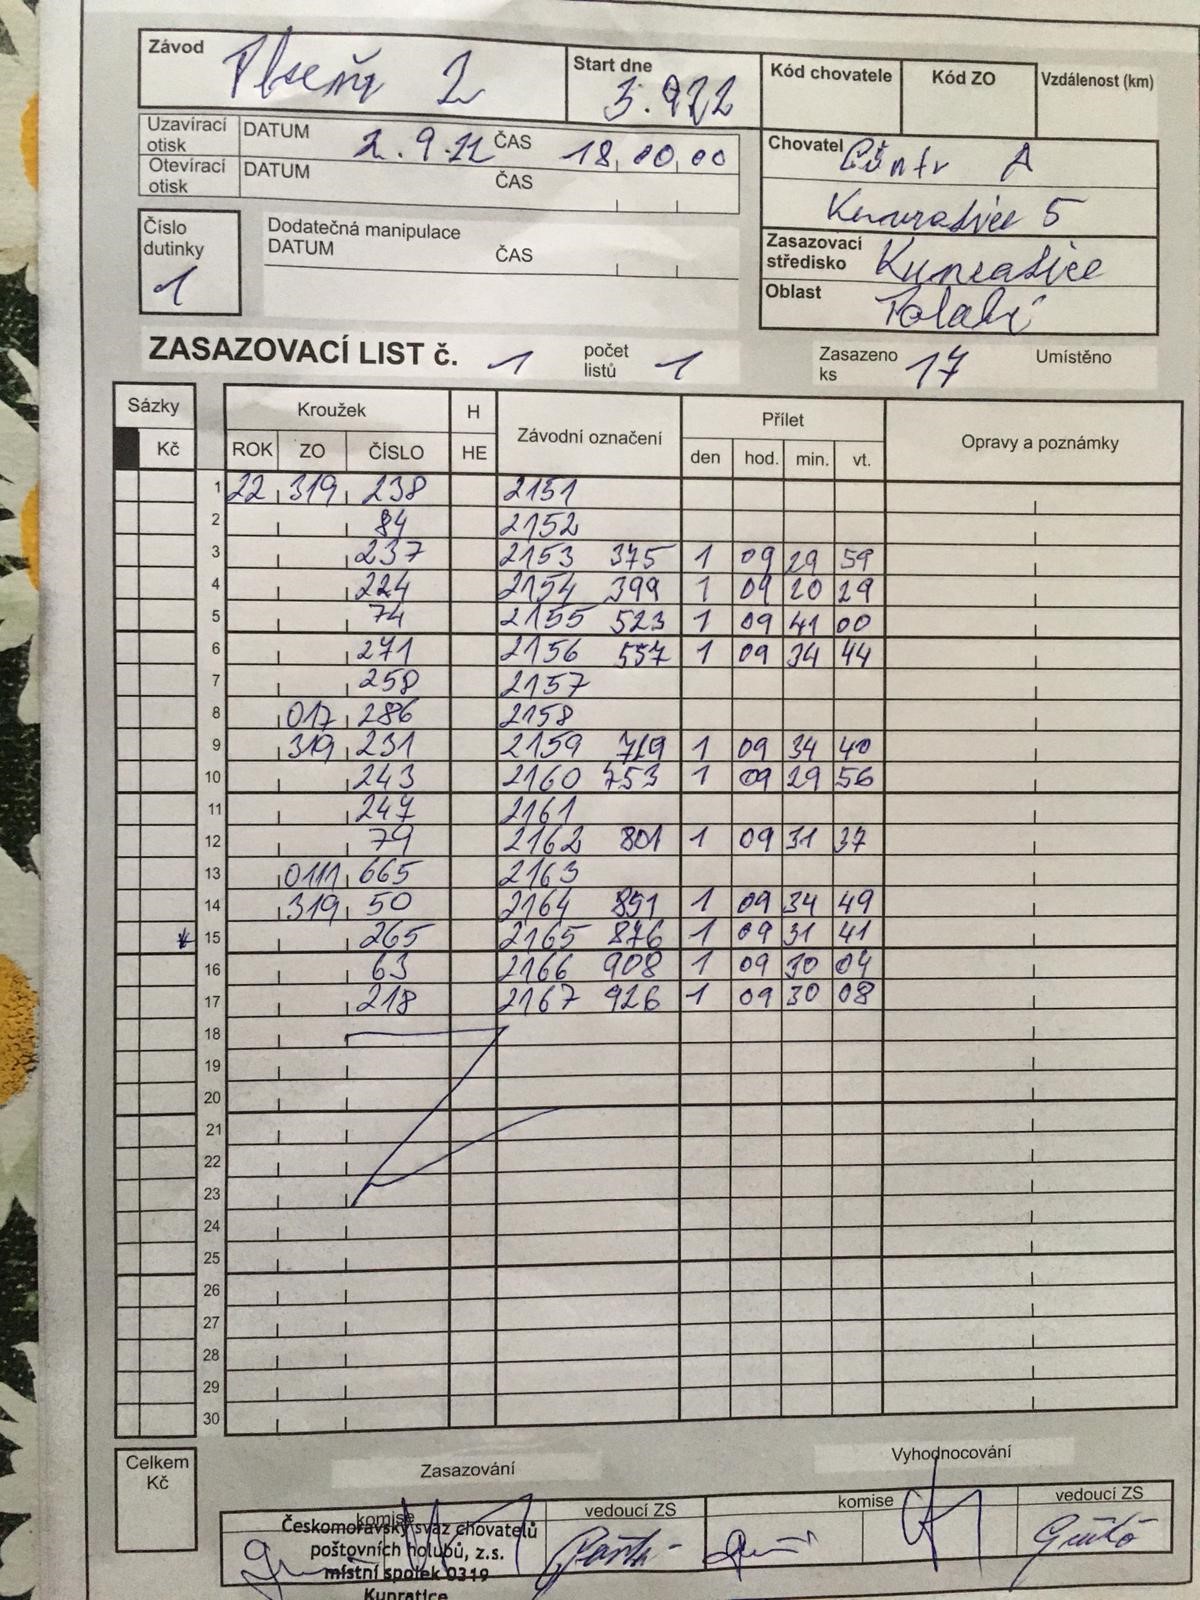 Závod Plzeň 2 Start dne 3.9.22 Kód chovatele Kód ZO Vzdálenost (km)
Uzavírací otisk DATUM 2.9.22 ČAS 18,00,00
Otevírací otisk DATUM ČAS
Chovatel A
Kunratice 5
Číslo dutinky 1
Dodatečná manipulace
DATUM ČAS
Zasazovací středisko Kunratice
Oblast Polabí
ZASAZOVACÍ LIST č. 1 počet listů 1 Zasazeno ks 17 Umístěno
Sázky Kroužek H Závodní označení Přílet Opravy a poznámky
Kč ROK ZO ČÍSLO HE den hod. min. vt.
1 22 319 238 2151
2 84 2152
3 237 2153 375 1 09 29 59
4 224 2154 399 1 09 20 29
5 74 2155 523 1 09 41 00
6 271 2156 557 1 09 34 44
7 258 2157
8 017 286 2158
9 319 231 2159 719 1 09 34 40
10 243 2160 753 1 09 29 56
11 247 2161
12 79 2162 801 1 09 31 37
13 0111 665 2163
14 319 50 2164 851 1 09 34 49
15 265 2165 876 1 09 31 41
16 63 2166 908 1 09 30 04
17 218 2167 926 1 09 30 08
18
19
20
21
22
23
24
25
26
27
28
29
30
Celkem Kč
Zasazování Vyhodnocování
komise vedoucí ZS komise vedoucí ZS
Českomoravský svaz chovatelů
poštovních holubů, z.s.
místní spolek 0319
Kunratice